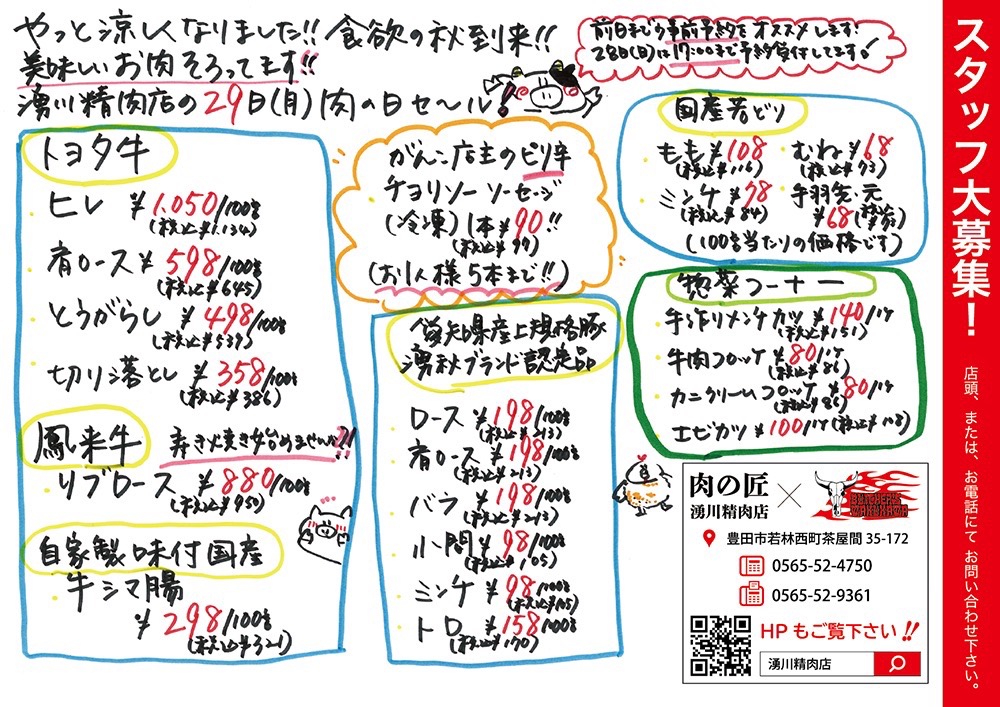 やっと涼しくなりました!! 食欲の秋到来!!
美味しいお肉そろってます!!
湧川精肉店の29日(月)肉の日セール!
前日までの事前予約をオススメします!
28日(日)は17:00まで予約受付してます!
トヨタ牛
ヒレ ¥1.050/100g
(税込¥1.134)
肩ロース ¥598/100g
(税込¥645)
とうがらし ¥498/100g
(税込¥537)
切り落とし ¥358/100g
(税込¥386)
鳳来牛 寿き焼き始めませんか?!
リブロース ¥880/100g
(税込¥950)
自家製味付国産
牛シマ腸
¥298/100g
(税込¥321)
がんこ店主のピリ辛
チョリソーソーセージ
(冷凍)1本¥90!!
(税込¥97)
(お1人様5本まで!!)
愛知県産上規格豚
湧秋ブランド認定品
ロース ¥198/100g
(税込¥213)
肩ロース ¥198/100g
(税込¥213)
バラ ¥198/100g
(税込¥213)
小間 ¥98/100g
(税込¥105)
ミンチ ¥98/100g
(税込¥105)
トロ ¥158/100g
(税込¥170)
国産若どり
もも¥108 むね¥68
(税込¥116) (税込¥73)
ミンチ ¥78 手羽先・元
(税込¥84) ¥68(税込¥73)
(100g当たりの価格です)
惣菜コーナー
手作りメンチカツ ¥140/1ケ
(税込¥151)
牛肉コロッケ ¥80/1ケ
(税込¥86)
カニクリームコロッケ ¥80/1ケ
(税込¥86)
エビカツ ¥100/1ケ(税込¥108)
肉の匠
湧川精肉店
×
BUTCHER'S
WAKUKAWA
豊田市若林西町茶屋間 35-172
0565-52-4750
0565-52-9361
HPもご覧下さい!!
湧川精肉店
スタッフ大募集！
店頭、または、お電話にてお問い合わせ下さい。